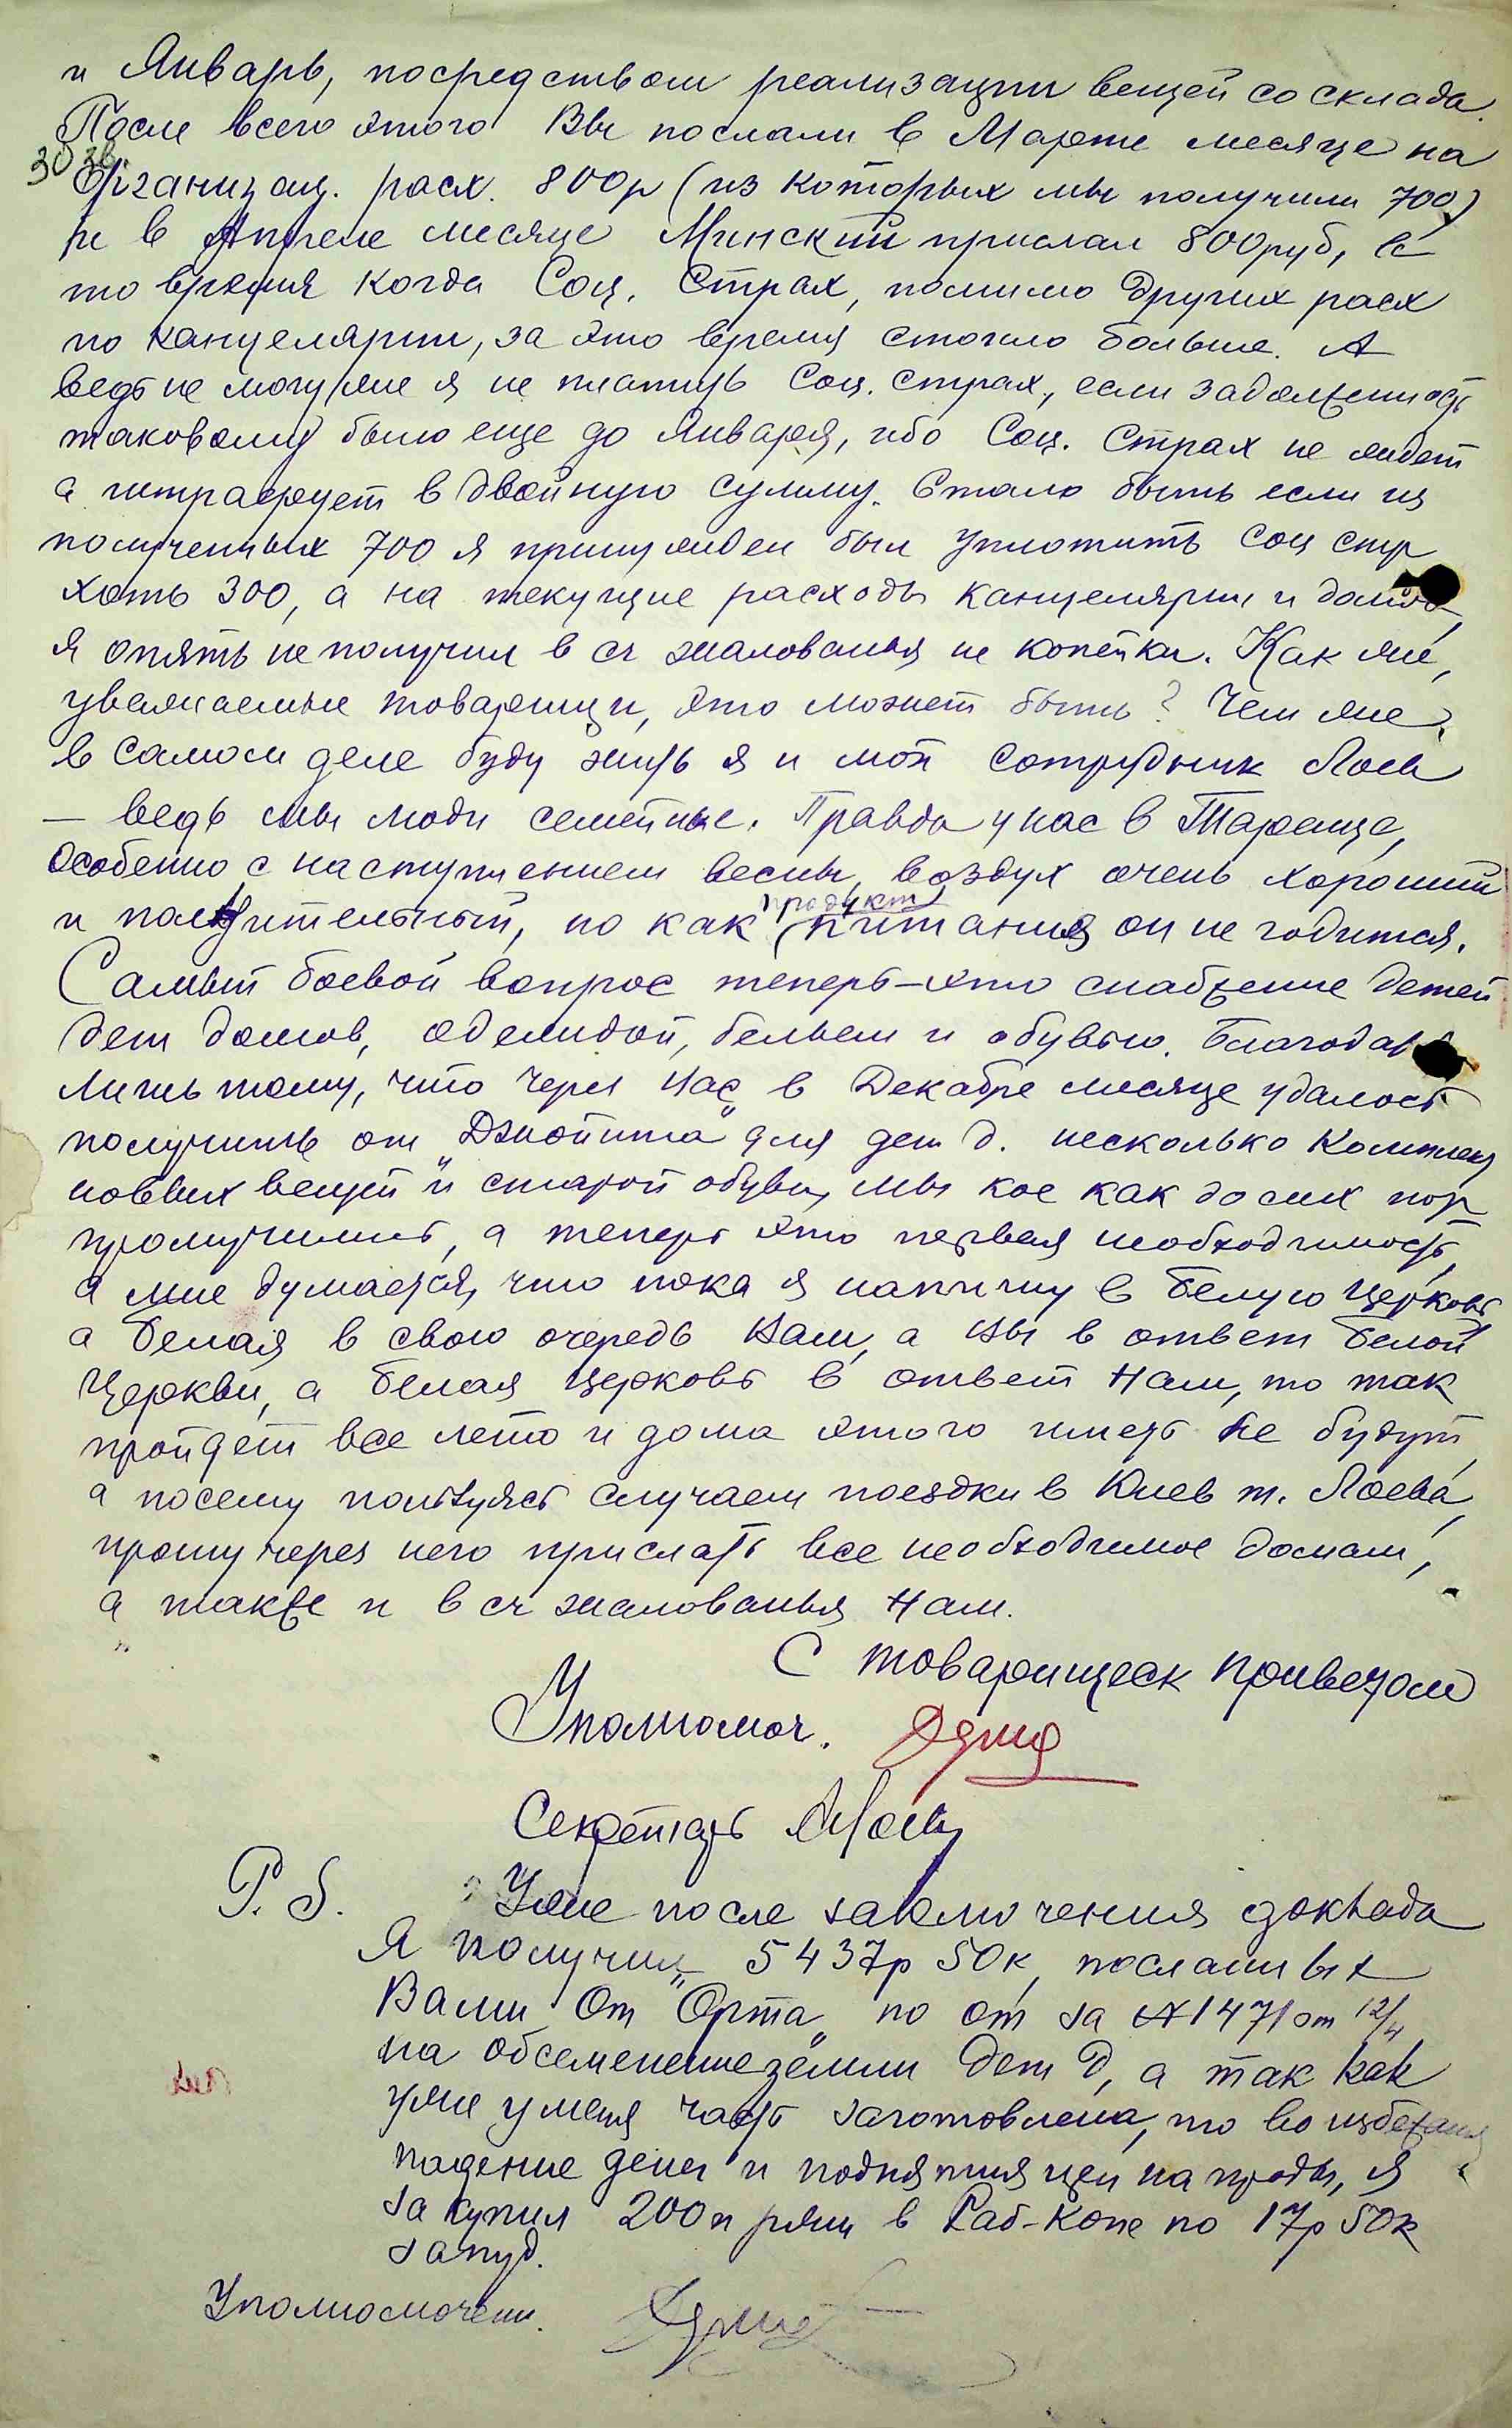 и Январь, посредством реализации вещей со склада.
После всего этого Вы послали в Марте месяце на
30 зв.
Организац. расх. 800р (из которых мы получили 700)
и в Апреле месяце Минский прислал 800руб, в
то время когда Соц. Страх, помимо других расх
по канцелярии, за это время стоило больше. А
ведь не могу же я не платить Соц. Страх., если задолженность
таковому было еще до Января, ибо Соц. Страх не ждет
а штрафует в двойную сумму. Стало быть если из
полученных 700 я принужден был уплотить Соц стр
хоть 300, а на текущие расходы канцелярии и
я опять не получил в сч жалованья не копейки. Как же,
уважаемые товарищи, это может быть? Чем же,
в самом деле буду жить я и мой сотрудник Лоев
— ведь мы люди семейные. Правда у нас в Тараще,
особенно с наступлением весны, воздух очень хороший
продукт
и полѣзительный, но как питания он не годится.
Самый боевой вопрос теперь – это снабжение детей
дет домов, одеждой, бельем и обувью. Благодаря
лишь тому, что через Нас в Декабре месяце удалось
получить от „Джойнта“ для дет д. несколько комплек
новых вещей и старой обуви, мы кое как до сих пор
промучились, а теперь это первая необходимость,
а мне думается, что пока я напишу в Белую Церковь
а Белая в свою очередь Вам, а Вы в ответ Белой
Церкви, а Белая Церковь в ответ Нам, то так
пройдет все лето и дома этого иметь не будут,
а посему пользуясь случаем поездки в Киев т. Лоева,
прошу через него прислать все необходимое домам,
а также и в сч жалованья Нам.
С товарищеск приветом
Уполномоч.
Секретарь Лоев
P. S. Уже после заключения доклада
Я получил 5437р 50к, посланных
Вами от „Орта“ по от за № 1471 от 12/4
на обсеменение земли Дет Д, а так как
уже у меня часть заготовлена, то во избежания
падение денег и поднятия цен на проды, я
закупил 200п ржи в Раб-Копе по 17р 50к
за пуд.
Уполномочен.